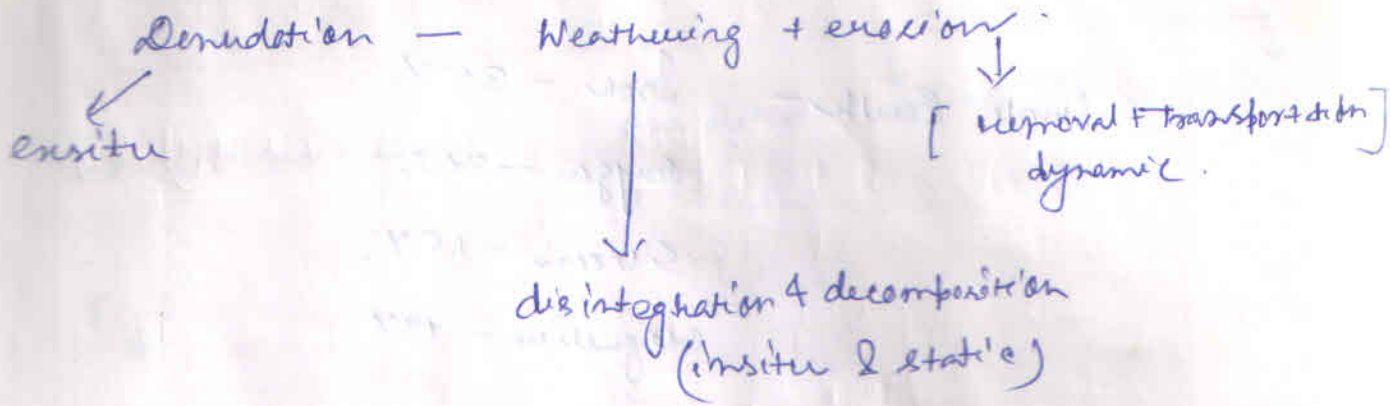 Denudation — Weathering + erosion.
exsitu
[removal + transportation]
dynamic.
disintegration & decomposition
(insitu & static)